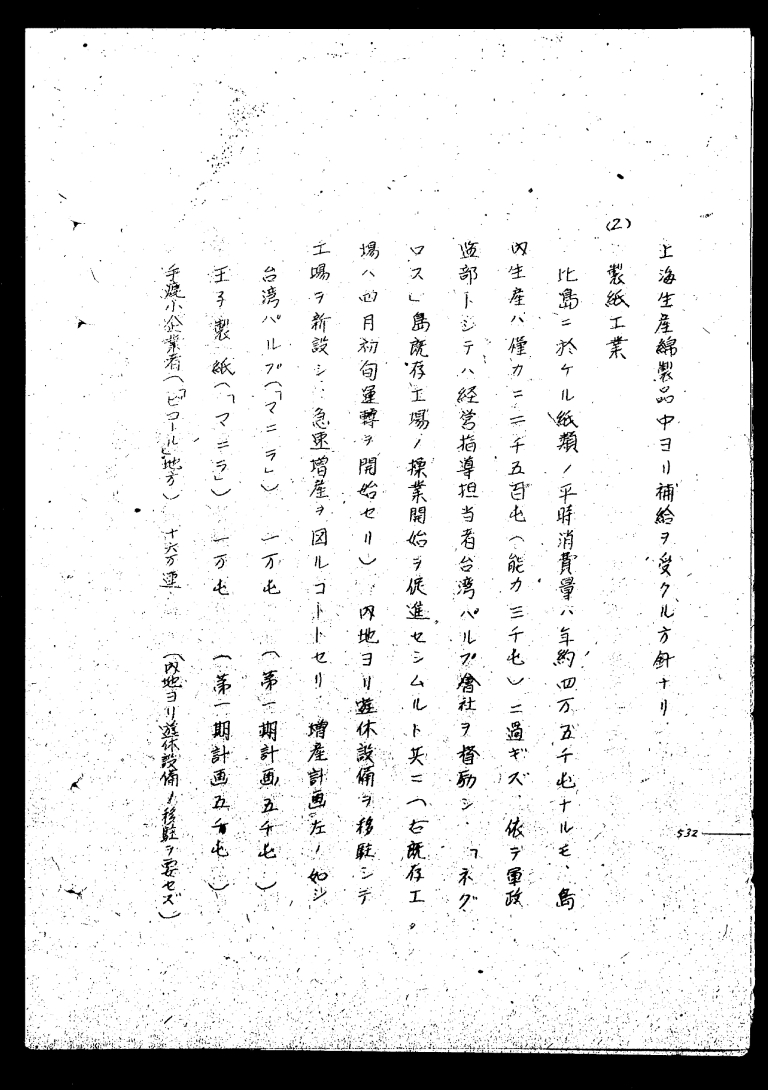 上海生産綿製品中ヨリ補給ヲ受クル方針ナリ
(2) 製紙工業
比島ニ於ケル紙類ノ平時消費量ハ年約四万五千屯ナルモ、島
内生産ハ僅カニ二千五百屯(能力三千屯)ニ過ギズ、依テ軍政
監部トシテハ経営指導担当者台湾パルプ會社ヲ督励シ、「ネグ
ロス」島既存工場ノ操業開始ヲ促進セシムルト共ニ(右既存工
場ハ四月初旬運轉ヲ開始セリ) 内地ヨリ遊休設備ヲ移駐シテ
工場ヲ新設シ、急速増産ヲ図ルコトトセリ 増産計画左ノ如シ
台湾パルプ(「マニラ」) 一万屯 (第一期計画五千屯)
王子製紙(「マニラ」) 一万屯 (第一期計画五千屯)
手漉小企業者(「ビコール」地方) 十六万連 (内地ヨリ遊休設備ノ移駐ヲ要セズ)
532